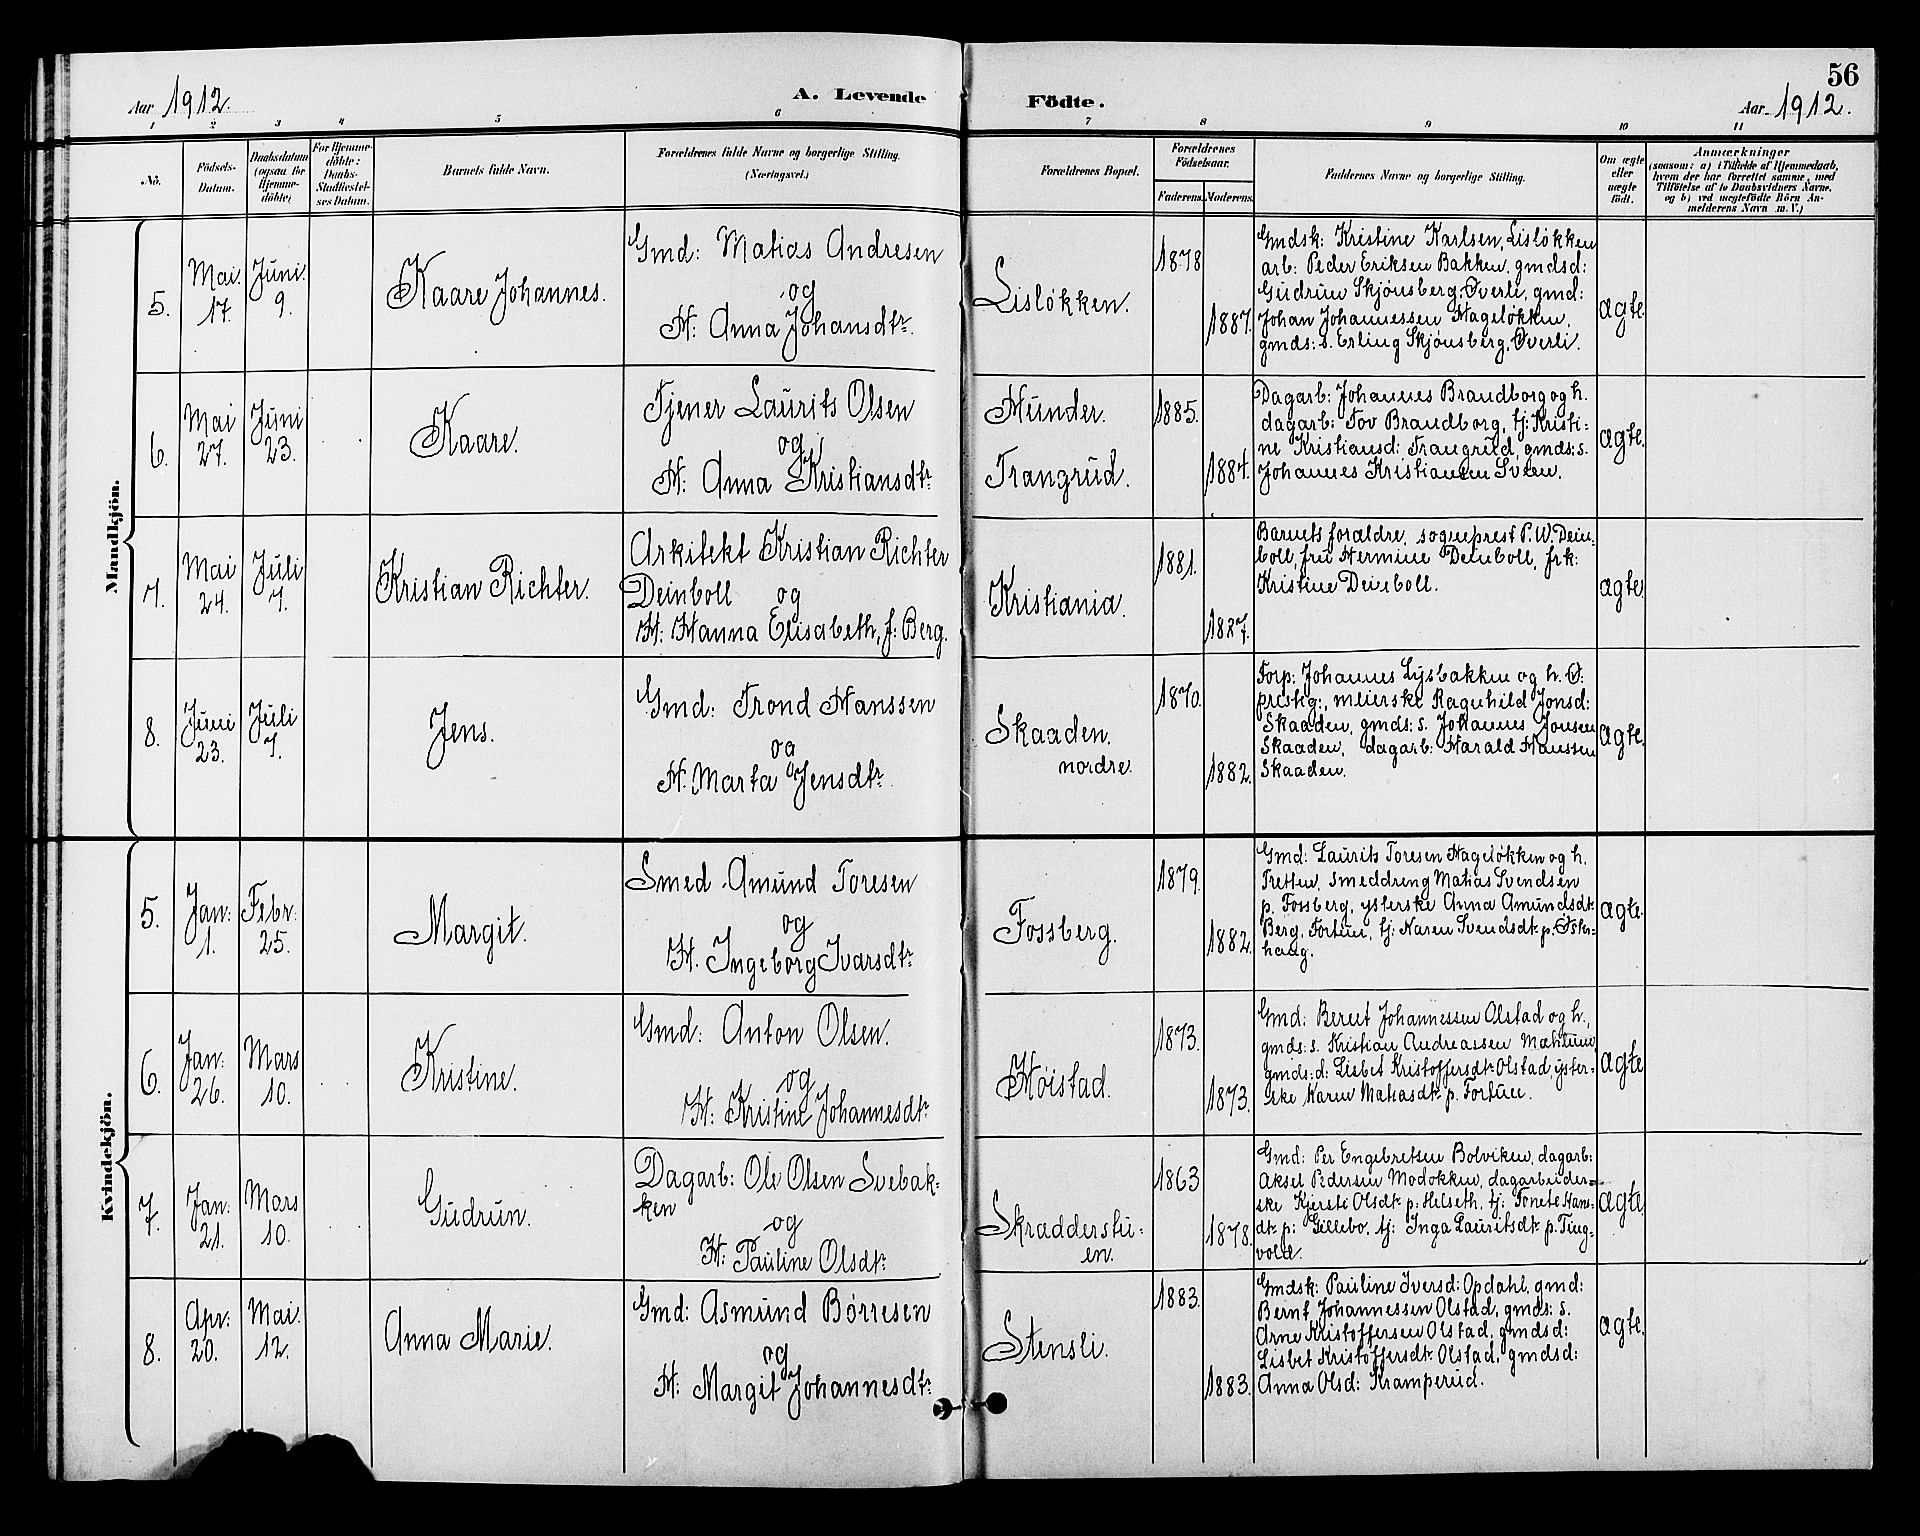 56
Aar 1912.
A. Levende Födte.
Aar 1912.
1 2 3 4 5 6 7 8 9 10 11
No.
Födsels-
Datum.
Daabsdatum
(ogsaa for
Hjemme-
döbte)
For Hjemme-
döbte:
Daabs-
Stadfæstel-
ses Datum.
Barnets fulde Navn.
Forældrenes fulde Navne og borgerlige Stilling.
(Næringsvei.)
Forældrenes Bopæl.
Forældrenes
Födselsaar.
Faderens.
Moderens.
Faddernes Navne og borgerlige Stilling.
Om ægte
eller
uægte
födt.
Anmærkninger
(saasom: a) i Tilfælde af Hjemmedaab,
hvem der har forrettet samme, med
Tilföielse af to Daabsvidners Navne.
og b) ved uægtefödte Börn An-
melderens Navn m. V.)
Mandkjön.
5.
Mai
17.
Juni.
9.
Kaare Johannes.
Gmd: Matias Andresen
og
H. Anna Johansdtr.
Lisløkken.
1878
1887.
Gmdsk: Kristine Karlsen, Lisløkken
arb: Peder Eriksen Bakken, gmdsd:
Gudrun Skjønsberg, Øverli, gmd:
Johan Johannessen Hageløkken,
gmds: s. Erling Skjønsberg, Øverli.
ægte.
6.
Mai
27.
Juni
23.
Kaare.
Tjener Laurits Olsen
og
H: Anna Kristiansdtr.
Hunder.
Trangrud.
1885.
1884.
Dagarb: Johannes Brandborg og h.
dagarb: Tov Brandborg, tj: Kristi-
ne Kristiansd: Trangrud, gmds: s.
Johannes Kristiansen Sveen.
ægte.
7.
Mai
24.
Juli
7.
Kristian Richter.
Arkitekt Kristian Richter
Deinboll og
H: Hanna Elisabeth, f: Berg.
Kristiania.
1881.
1887.
Barnets forældre, sogneprest P. W. Dein-
boll, fru Hermine Deinboll, frk:
Kristine Deinboll.
ægte.
8.
Juni
23.
Juli
7.
Jens.
Gmd: Trond Hanssen
og
H. Marta Jensdtr.
Skaaden.
nordre.
1870.
1882.
Forp: Johannes Lysbakken og h. Ø:
prestg:, meierske Ragnhild Jonsd:
Skaaden, gmds: s. Johannes Jonsen
Skaaden, dagarb: Harald Hanssen
Skaaden.
ægte.
Kvindekjön.
5.
Jan:
1.
Febr:
25.
Margit.
Smed Amund Toresen
og
H. Ingeborg Ivarsdtr.
Fossberg.
1879.
1882.
Gmd: Laurits Toresen Hageløkken og h.
Tretten, smeddreng Matias Svendsen
p. Fossberg, ysterske Anna Amundsdtr.
Berg, Fortun, tj: Karen Svendsdtr. p.
haug.
ægte.
6.
Jan:
26.
Mars
10.
Kristine.
Gmd: Anton Olsen.
og
H: Kristine Johannesdtr.
Høistad.
1873.
1873.
Gmd: Bernt Johannessen Olstad og h.,
gmds: s. Kristian Andreassen
gmds: d: Lisbet Kristoffersdtr. Olstad, yster-
ske Karen Matiasdtr. p. Fortun.
ægte
7.
Jan:
21.
Mars
10.
Gudrun.
Dagarb: Ole Olsen Svebak-
ken
og
H: Pauline Olsdtr.
Skradderstu-
en.
1863
1878.
Gmd: Per Engebretsen Bolviken, dagarb:
Aksel Pedersen Modokken, dagarbeider-
ske Kjerste Olsdtr. p: Helseth, tj: Hans-
dtr. p: Gillebo, tj: Inga Lauritsdtr. p. Ting-
vold.
ægte.
8.
Apr:
20.
Mai.
12.
Anna Marie.
Gmd: Asmund Børresen
og
H: Margit Johannesdtr.
Stensli.
1883.
1883.
Gmdsk: Pauline Iversd: Opdahl, gmd:
Bernt Johannessen Olstad, gmds: s.
Arne Kristoffersen Olstad, gmdsd:
Lisbet Kristoffersdtr. Olstad, gmdsd:
Anna Olsd: Kramperud.
ægte.